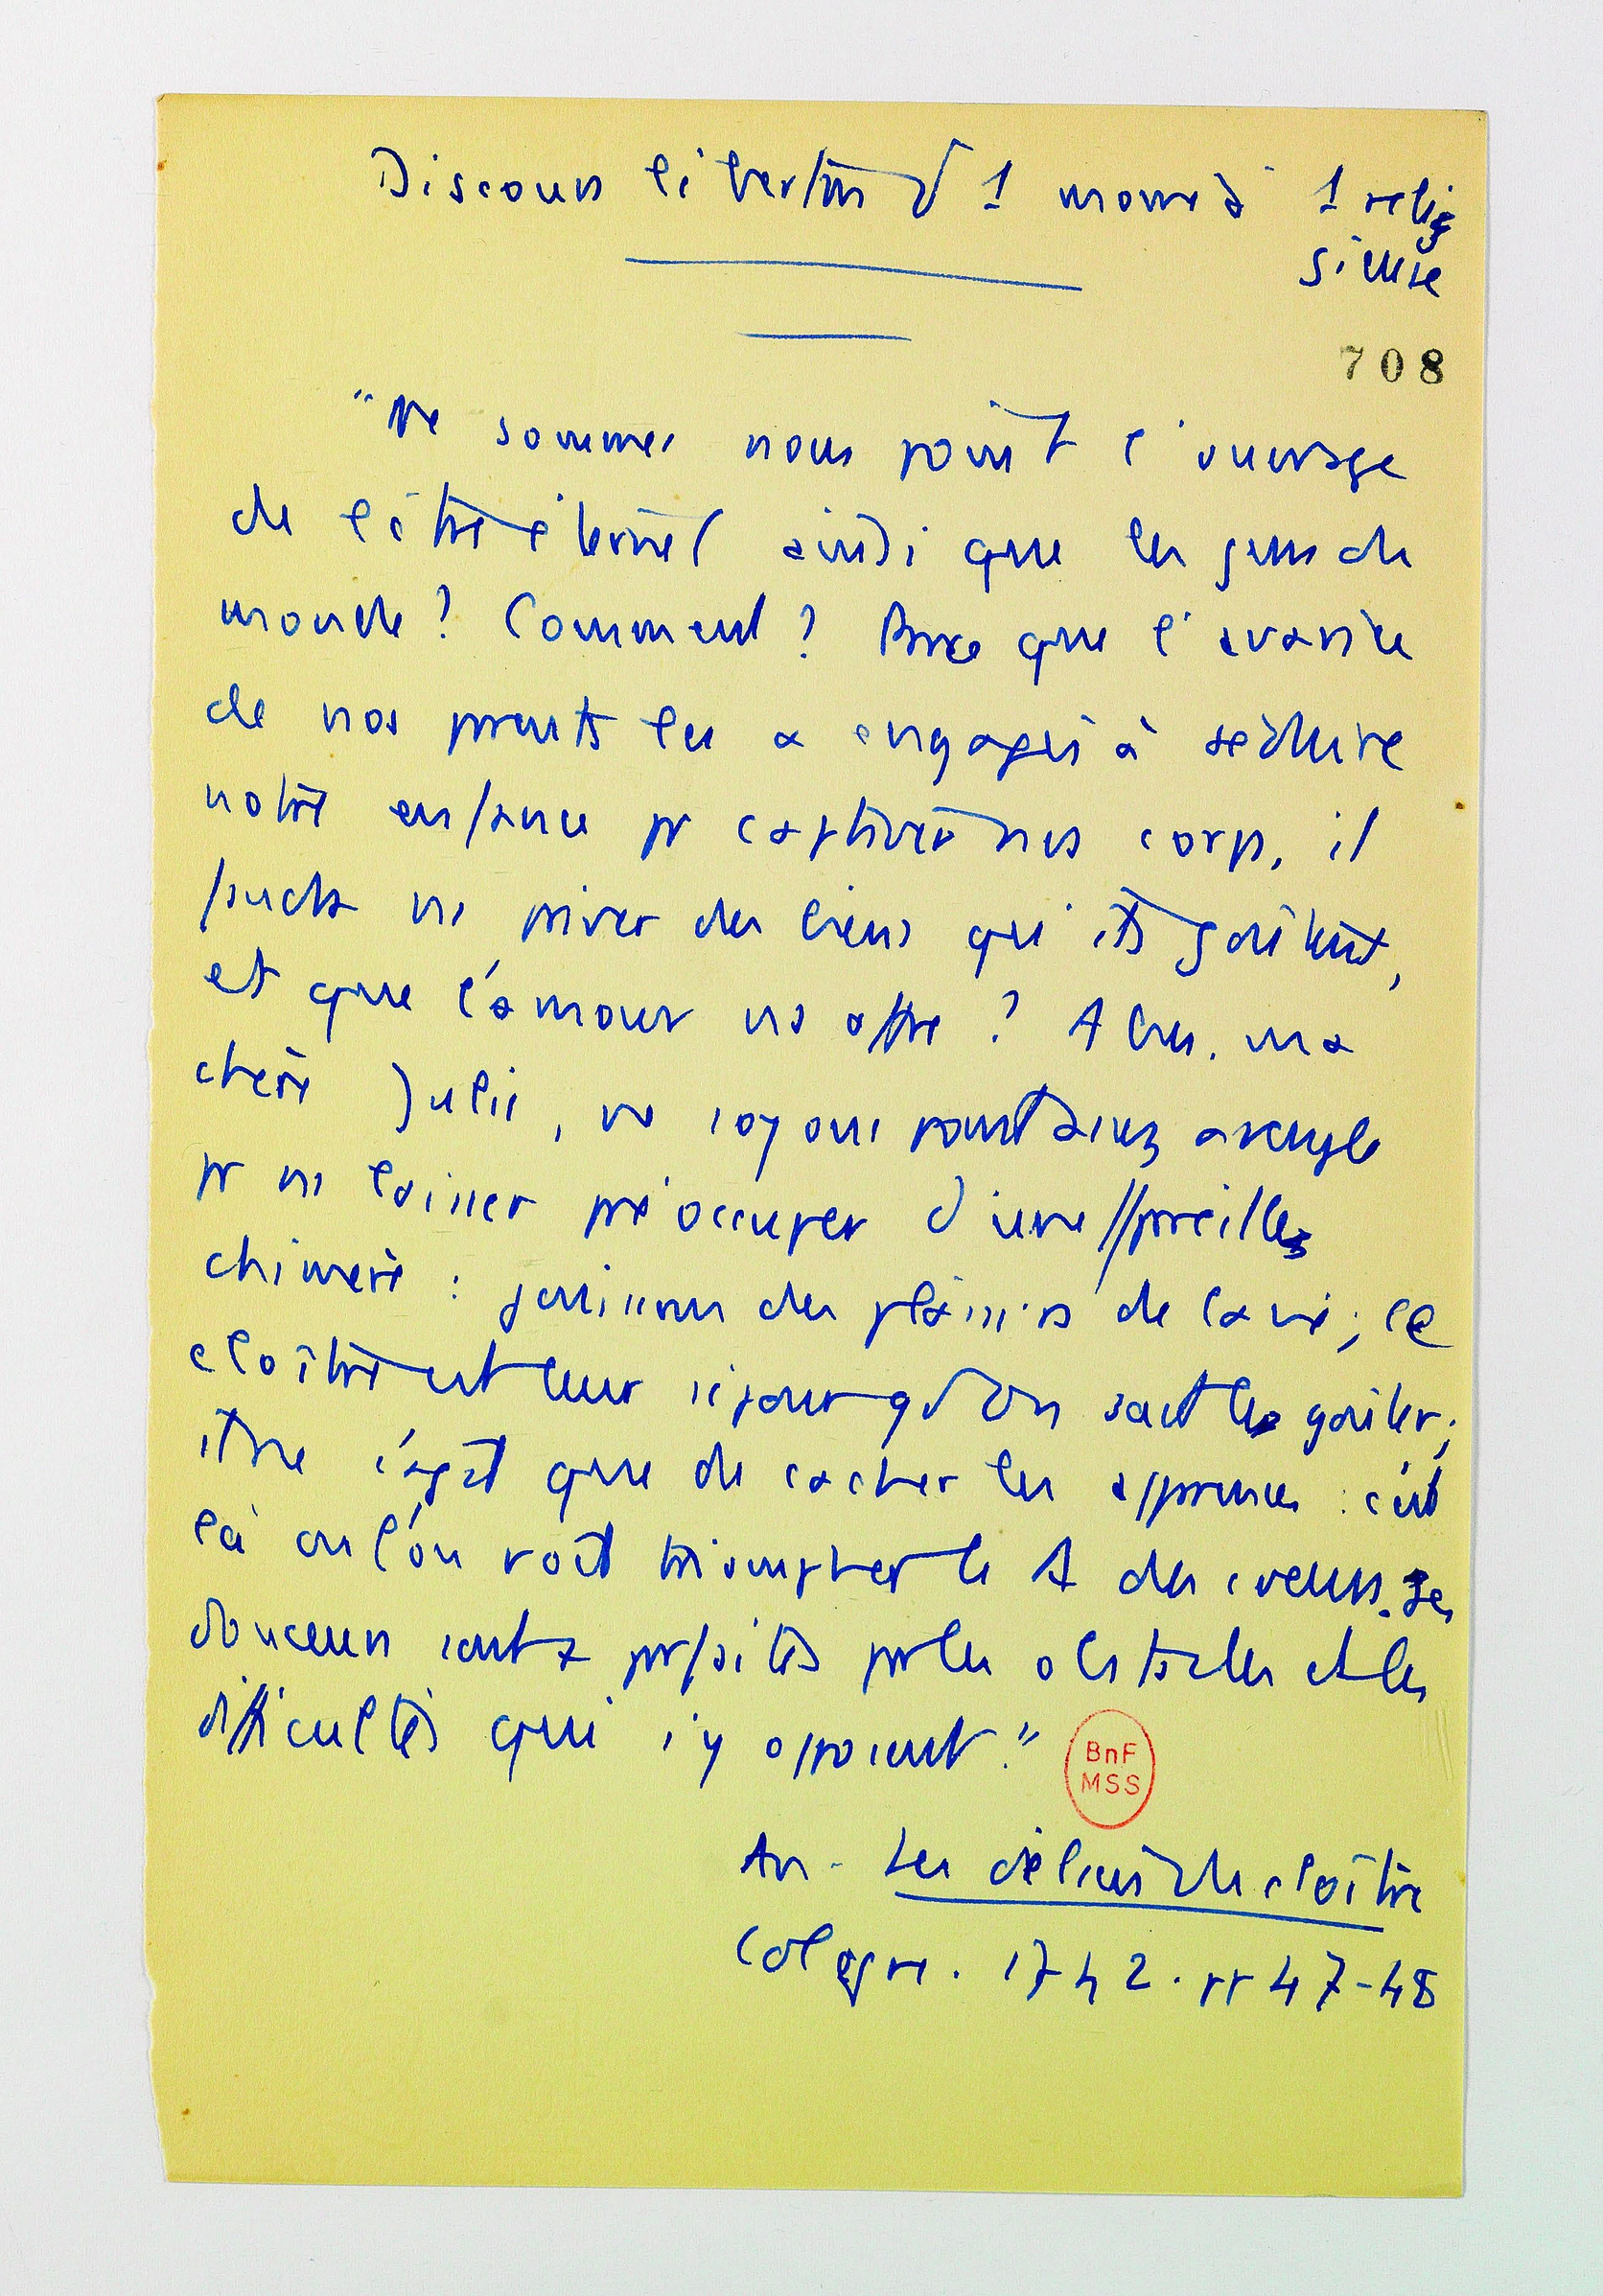 Discours libertin d'1 moine à 1 relig
sieuse
708
"Ne sommes nous point l'ouvrage
de l'être éternel ainsi que les gens du
monde ? Comment ? Parce que l'avarice
de nos parents les a engagés à séduire
notre enfance pr captiver nos corps, il
faudra ns priver des biens qui goûtent,
et que l'amour ns offre ? Abus. ma
chère Julie, ne soyons point assez aveugle
pr ns laisser préoccuper d'une pareille
chimère : jouissons des plaisirs de la vie ; le
cloître est leur séjour qd on sait les goûter ;
il ne s'agit que de cacher les apparences : c'est
là où l'on voit triompher le A des coeurs. Ses
douceurs sont + parfaites par les obstacles et les
difficultés qui s'y opposent."
BnF
MSS
An - Les délices du cloître
Cologne. 1742. pp 47-48